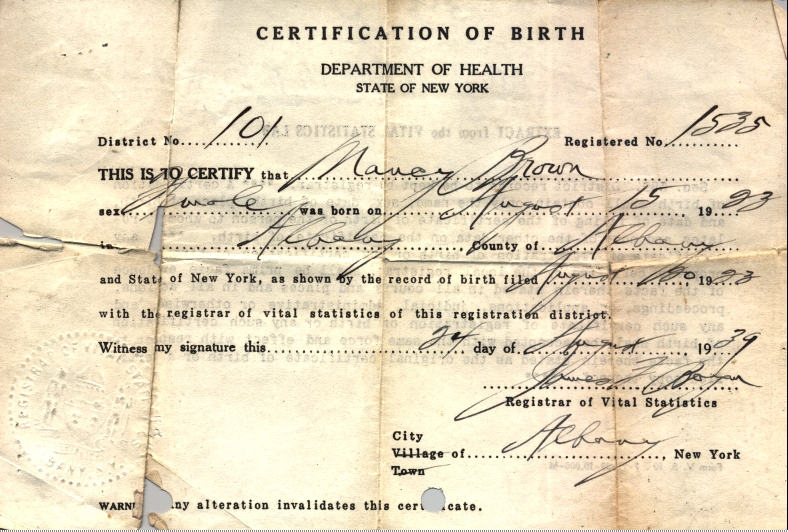 CERTIFICATION OF BIRTH
DEPARTMENT OF HEALTH
STATE OF NEW YORK
District No. 101 Registered No. 1535
THIS IS TO CERTIFY that Nancy Brown
sex Female was born on August 15, 1923
in Albany County of Albany
and State of New York, as shown by the record of birth filed August 1923
with the registrar of vital statistics of this registration district.
Witness my signature this 24 day of August 1939
James
Registrar of Vital Statistics
City
Village of Albany, New York
Town
any alteration invalidates this